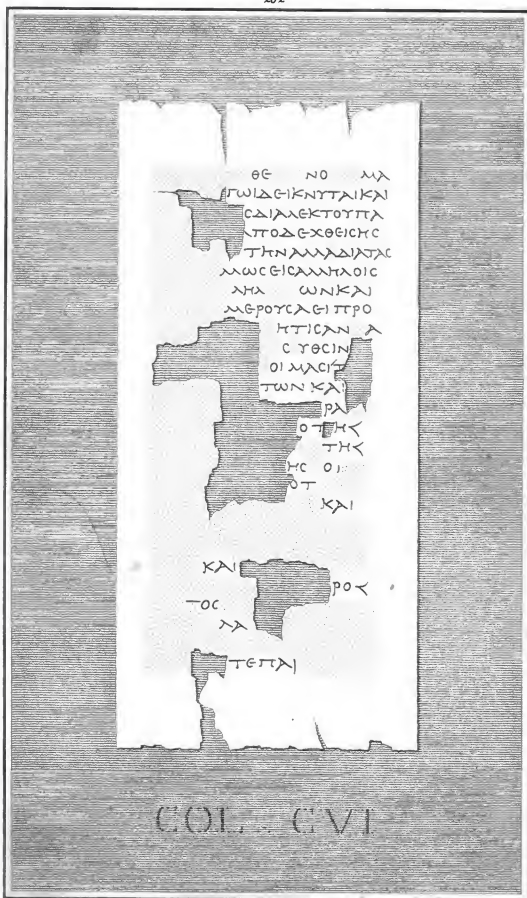 ΘΕ ΝΟ ΜΑ
ΓΩΙΔΕΙΚΝΥΤΑΙΚΑΙ
ϹΔΙΑΛΕΚΤΟΥΠΑ
ΑΠΟΔΕΧΘΕΙϹΗϹ
ΤΗΝΑΛΛΑΔΙΑΤΑϹ
ΜΩϹΕΙϹΑΛΛΗΛΟΙϹ
ΛΗΛ ΩΝΚΑΙ
ΜΕΡΟΥϹΑΕΙΠΡΟ
ΗΤΙϹΑΝ Α
Ϲ ΥΘΕΙΝ
ΟΙΜΑϹΙΤ
ΤΩΝ ΚΑΙ
ΡΑ
ΟΤ ΗΥ
ΤΗΥ
ΗϹ ΟΙ
ΟΤ
ΚΑΙ
ΚΑΙ
ΡΟΥ
ΤΟϹ
ΛΑ
ΤΕΠΑΙ
COL. CVI